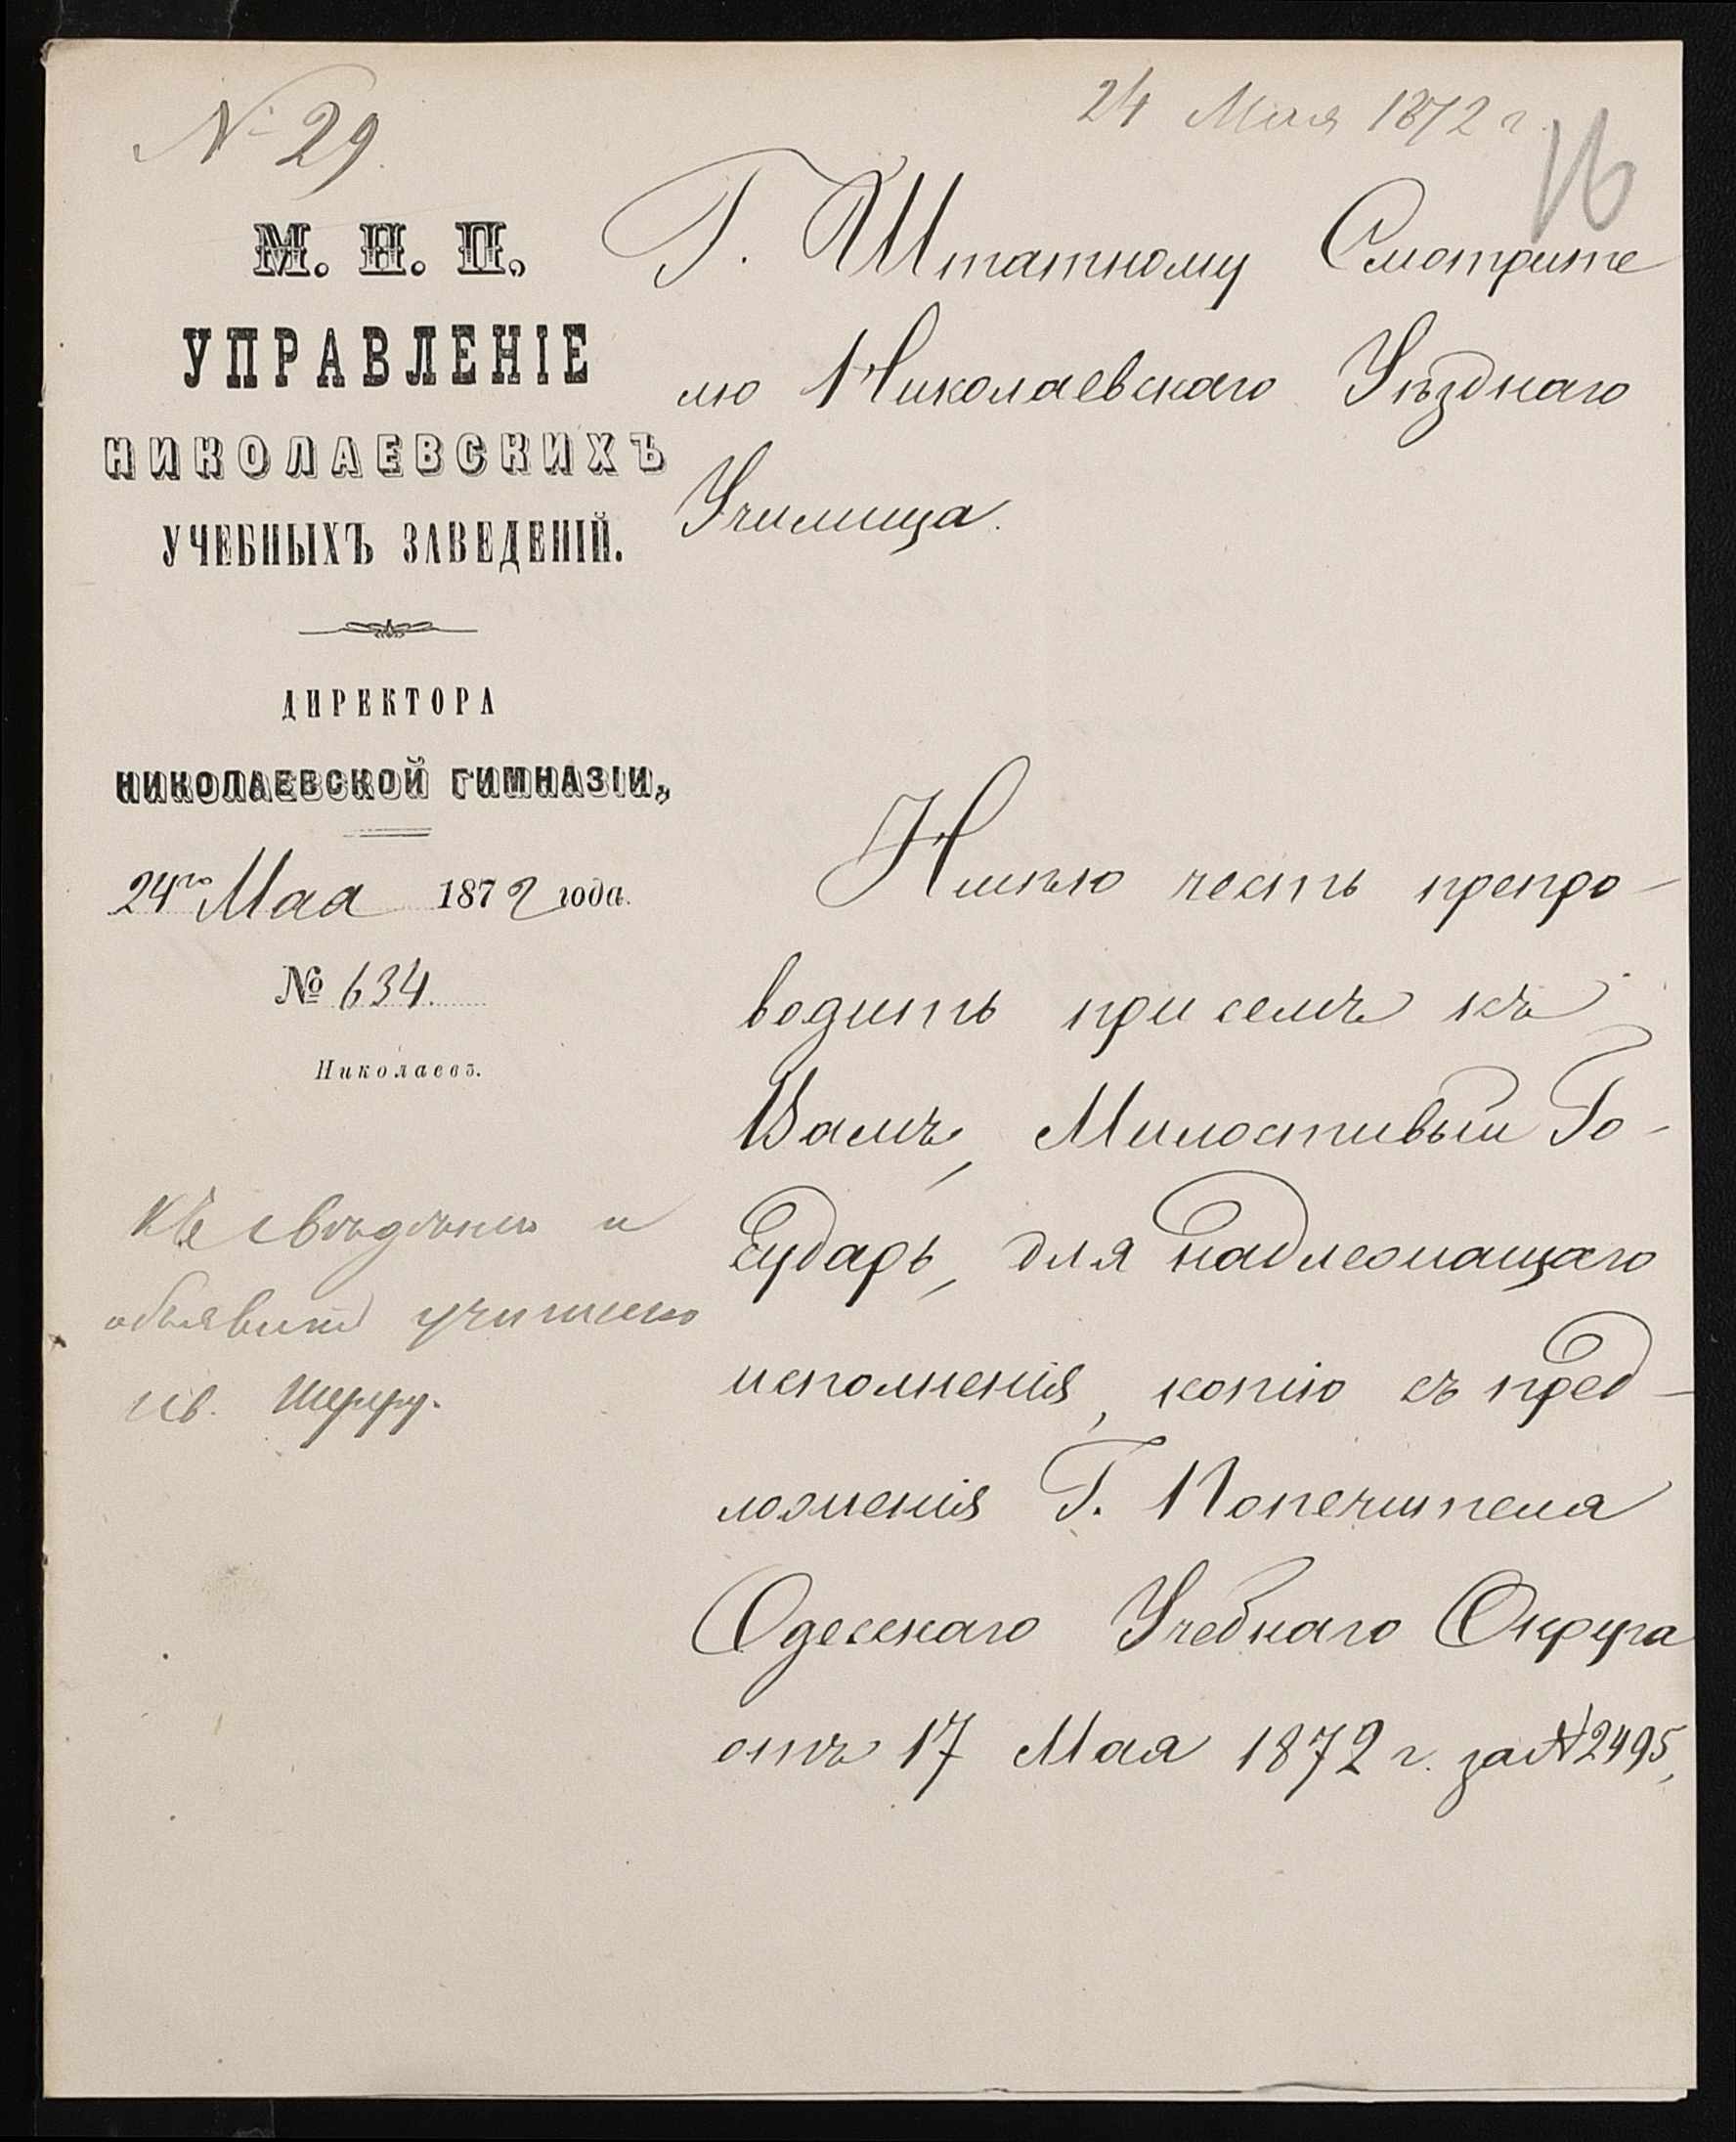 № 29.
24 Мая 1872 г.
16
М. Н. П.
УПРАВЛЕНІЕ
НИКОЛАЕВСКИХЪ
УЧЕБНЫХЪ ЗАВЕДЕНІЙ.
ДИРЕКТОРА
НИКОЛАЕВСКОЙ ГИМНАЗІИ,
24го Мая 1872 года.
№ 634.
Николаевъ.
Къ свѣдѣнію и
объявить учителю
Шерру.
Г. Штатному Смотрите
лю Николаевскаго Уѣзднаго
Училища.
Имѣю честь препро-
водить при семъ къ
Вамъ, Милостивый Го-
сударь, для надлежащаго
исполненія, копію съ пред-
ложенія Г. Попечителя
Одесскаго Учебнаго Округа
отъ 17 Мая 1872 г. за № 2495,